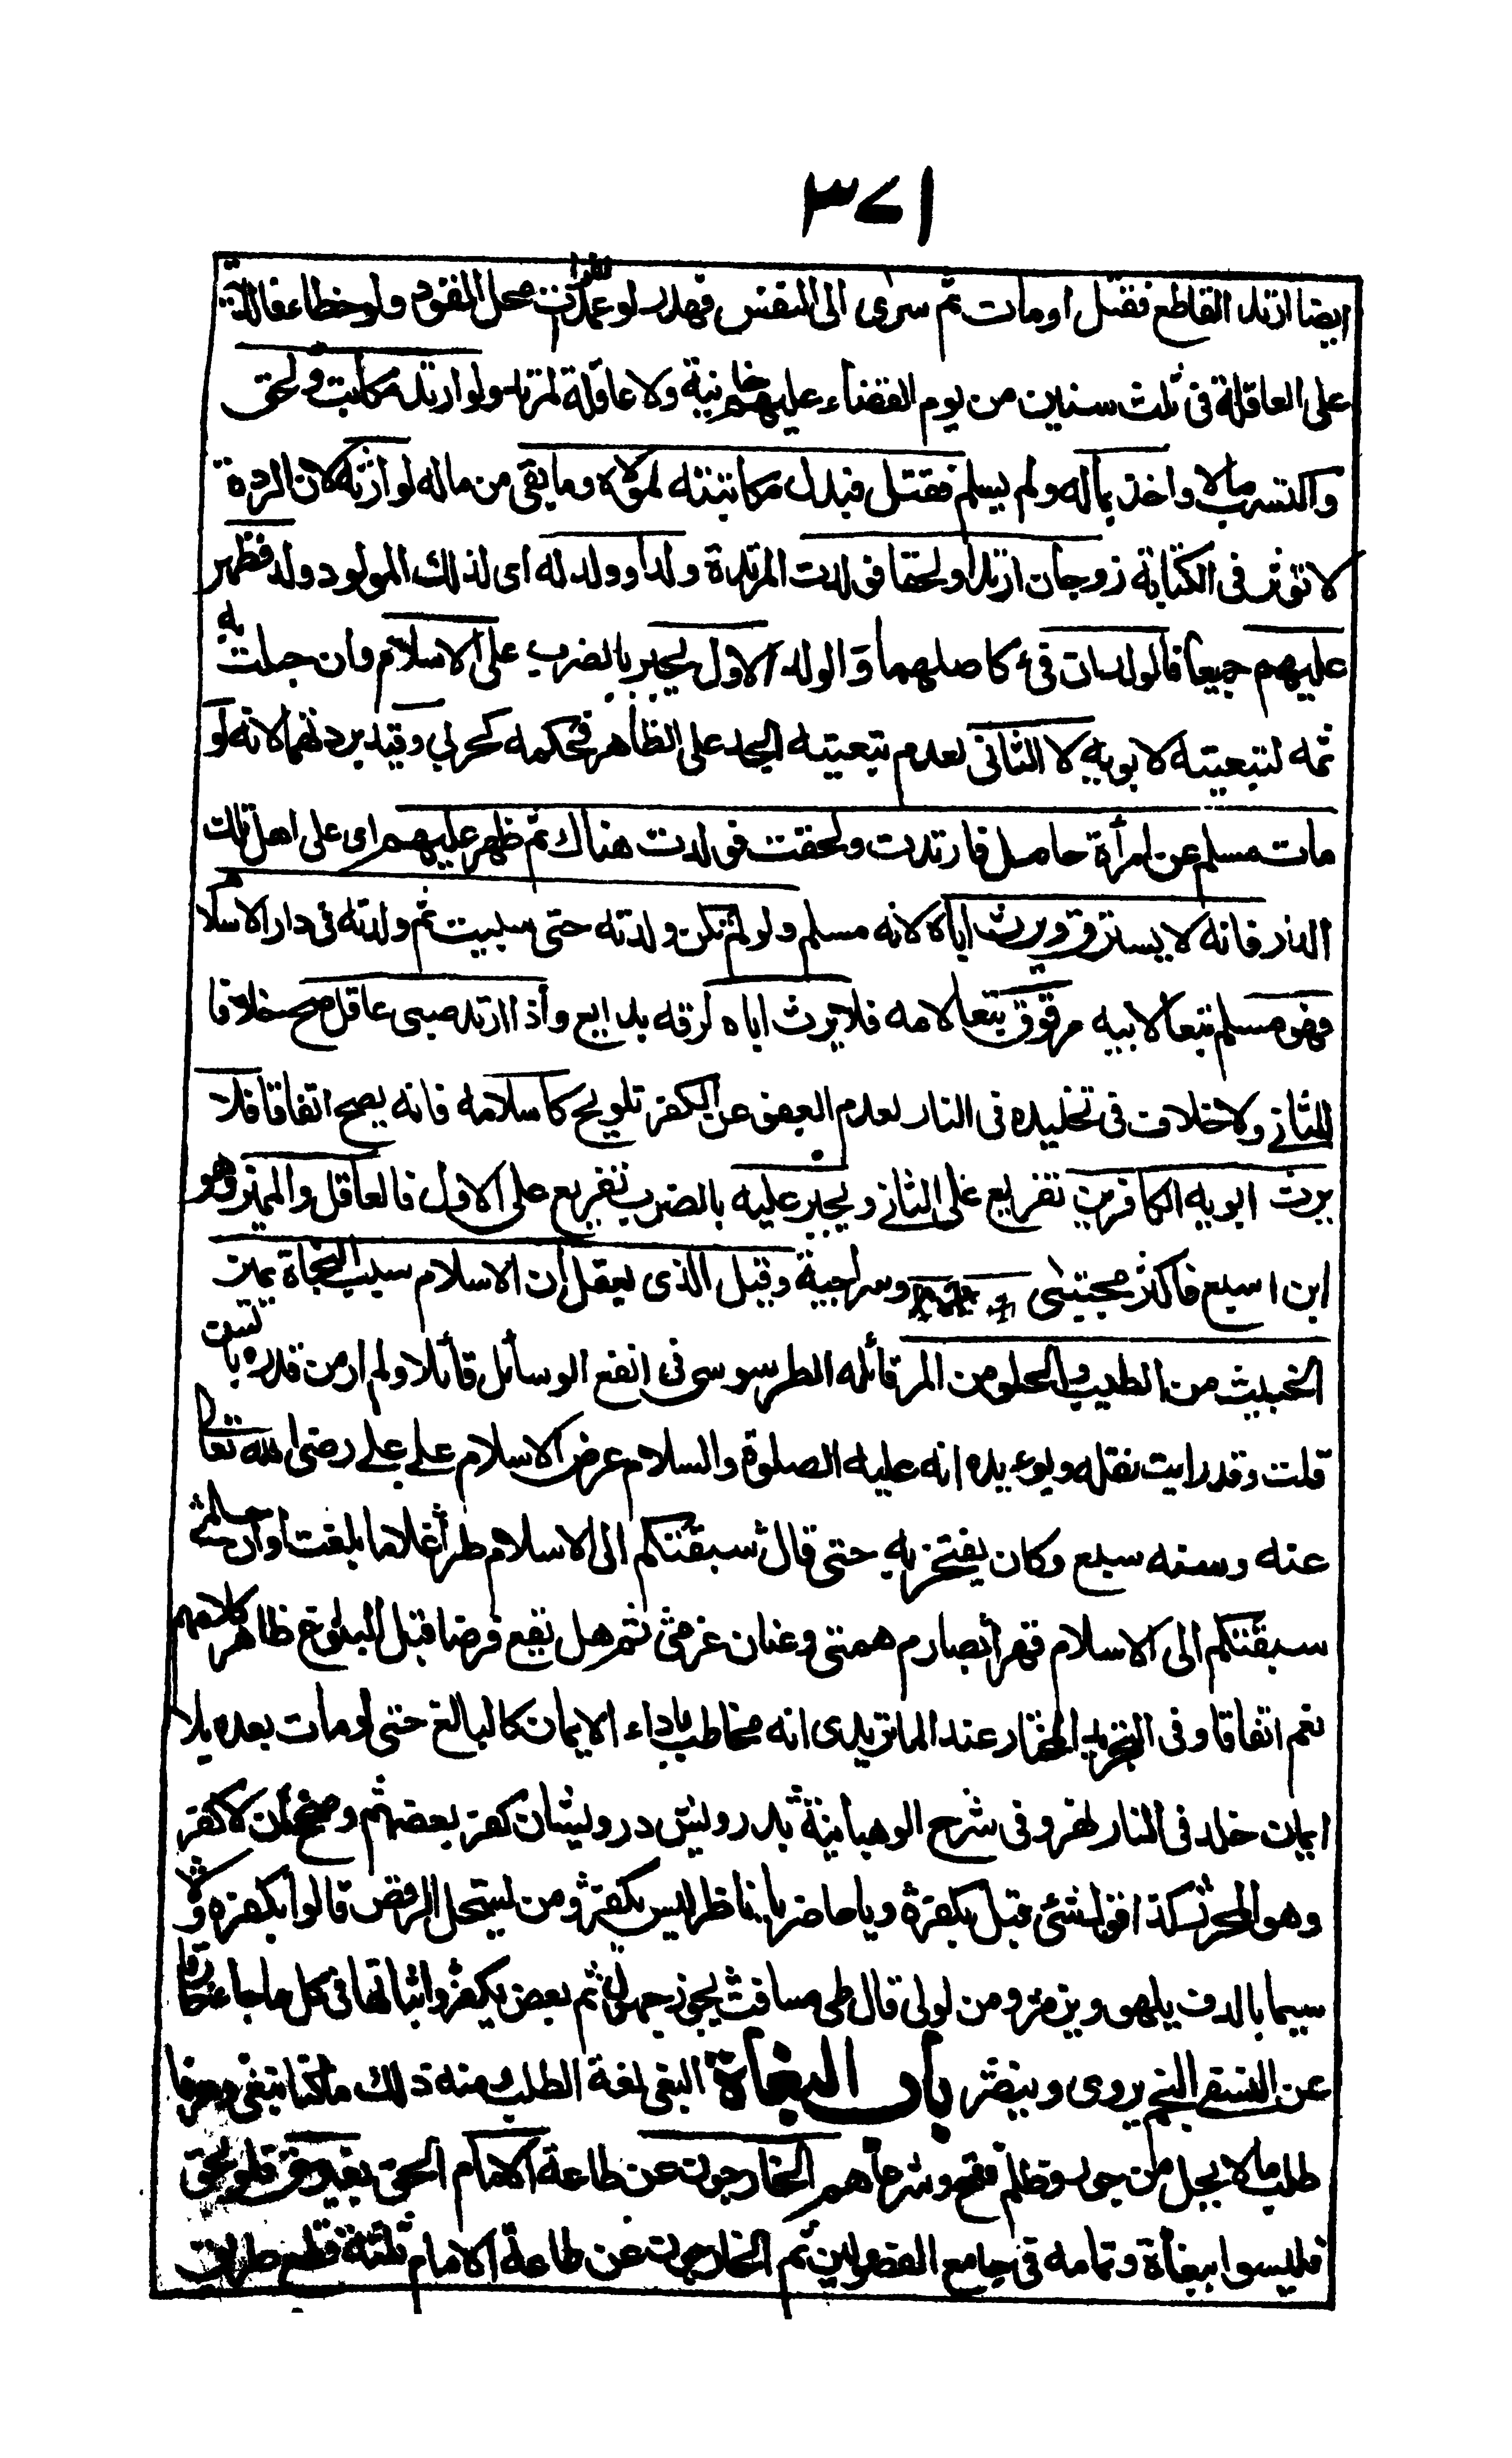 ٣٧١
ايضا ارتد القاطع فقتل او مات ثم سرى الى النفس فهدر لو عمدا لفوت محل القود ولو خطاء فالدية
على العاقلة فى ثلث سنين من يوم القضاء عليهم خانية ولا عاقلة لمرتد ولو ارتد مكاتب ولحق
واكتسب مالا واخذ بماله ولم يسلم فقتل فبدل مكاتبته لمولاه وما بقى من ماله لوارثه لان الردة
لا تؤثر فى الكتابة زوجان ارتدا ولحقا فولدت المرتدة ولدا وولد له اى لذلك المولود ولد فظهر
عليهم جميعا فالولدان فئ كاصلهما والولد الاول يجبر بالضرب على الاسلام وان حبلت به
ثمه لتبعيته لابويه لا الثانى لعدم تبعيته الجد على الظاهر فحكمه كحربى وقيد بردتهما لانه لو
مات مسلم عن امرأة حامل فارتدت ولحقت فولدت هناك ثم ظهر عليهم اى على اهل تلك
الدار فانه لا يسترق ويرث اباه لانه مسلم ولو لم تكن ولدته حتى سبيت ثم ولدته فى دار الاسلا
فهو مسلم تبعا لابيه مرقوق تبعا لامه فلا يرث اباه لرقه بدايع واذا ارتد صبى عاقل صح خلافا
للثانى ولا خلاف فى تخليده فى النار لعدم العفو عن الكفر تلويح كاسلامه فانه يصح اتفاقا فلا
يرث ابويه الكافرين تفريع على الثانى ويجبر عليه بالضرب تفريع على الاول فالعاقل والمميز وهو
ابن سبع فاكثر مجتبى وسراجية وقيل الذى يعقل ان الاسلام سبب النجاة يميز
الخبيث من الطيب والحلو من المر قائله الطرسوسى فى انفع الوسائل قائلا ولم ار من قدره بالسن
قلت وقد رايت نقله ويؤيده انه عليه الصلوة والسلام عرض الاسلام على على رضى الله تعالى
عنه وسنه سبع وكان يفتخر به حتى قال سبقتكم الى الاسلام طرا غلاما ما بلغت اوان حلمى
سبقتكم الى الاسلام قهرا بصارم همتى وعنان عزمى ثم هل يقع فرضا قبل البلوغ ظاهر كلامهم
نعم اتفاقا وفى التحرير المختار عند الماتريدى انه مخاطب باداء الايمان كالبالغ حتى لو مات بعده بلا
ايمان خلد فى النار نهر وفى شرح الوهبانية بدرويش درويشان كفر بعضهم وصحح ان لا كفر
وهو المحرر كذا قول شئ قيل بكفره ويا حاضر يا ناظر ليس يكفر ومن يستحل الرقص قالوا بكفره ولا
سيما بالدف يلهو ويزمر ومن لولى قال طى مسافة يجوز جهول ثم بعض يكفر واثباتها فى كل ما جاء خارقا
عن النسفى النجم يروى وينصر باب البغاة البغى لغة الطلب ومنه ذلك ما كنا نبغى وعرفا
طلب ما لا يحل من جور وظلم فتح وشرعا هم الخارجون عن طاعة الامام الحق بغير حق فلو بحق
فليسوا ببغاة وتمامه فى جامع الفصولين ثم الخارجون عن طاعة الامام ثلثة قطع طريق